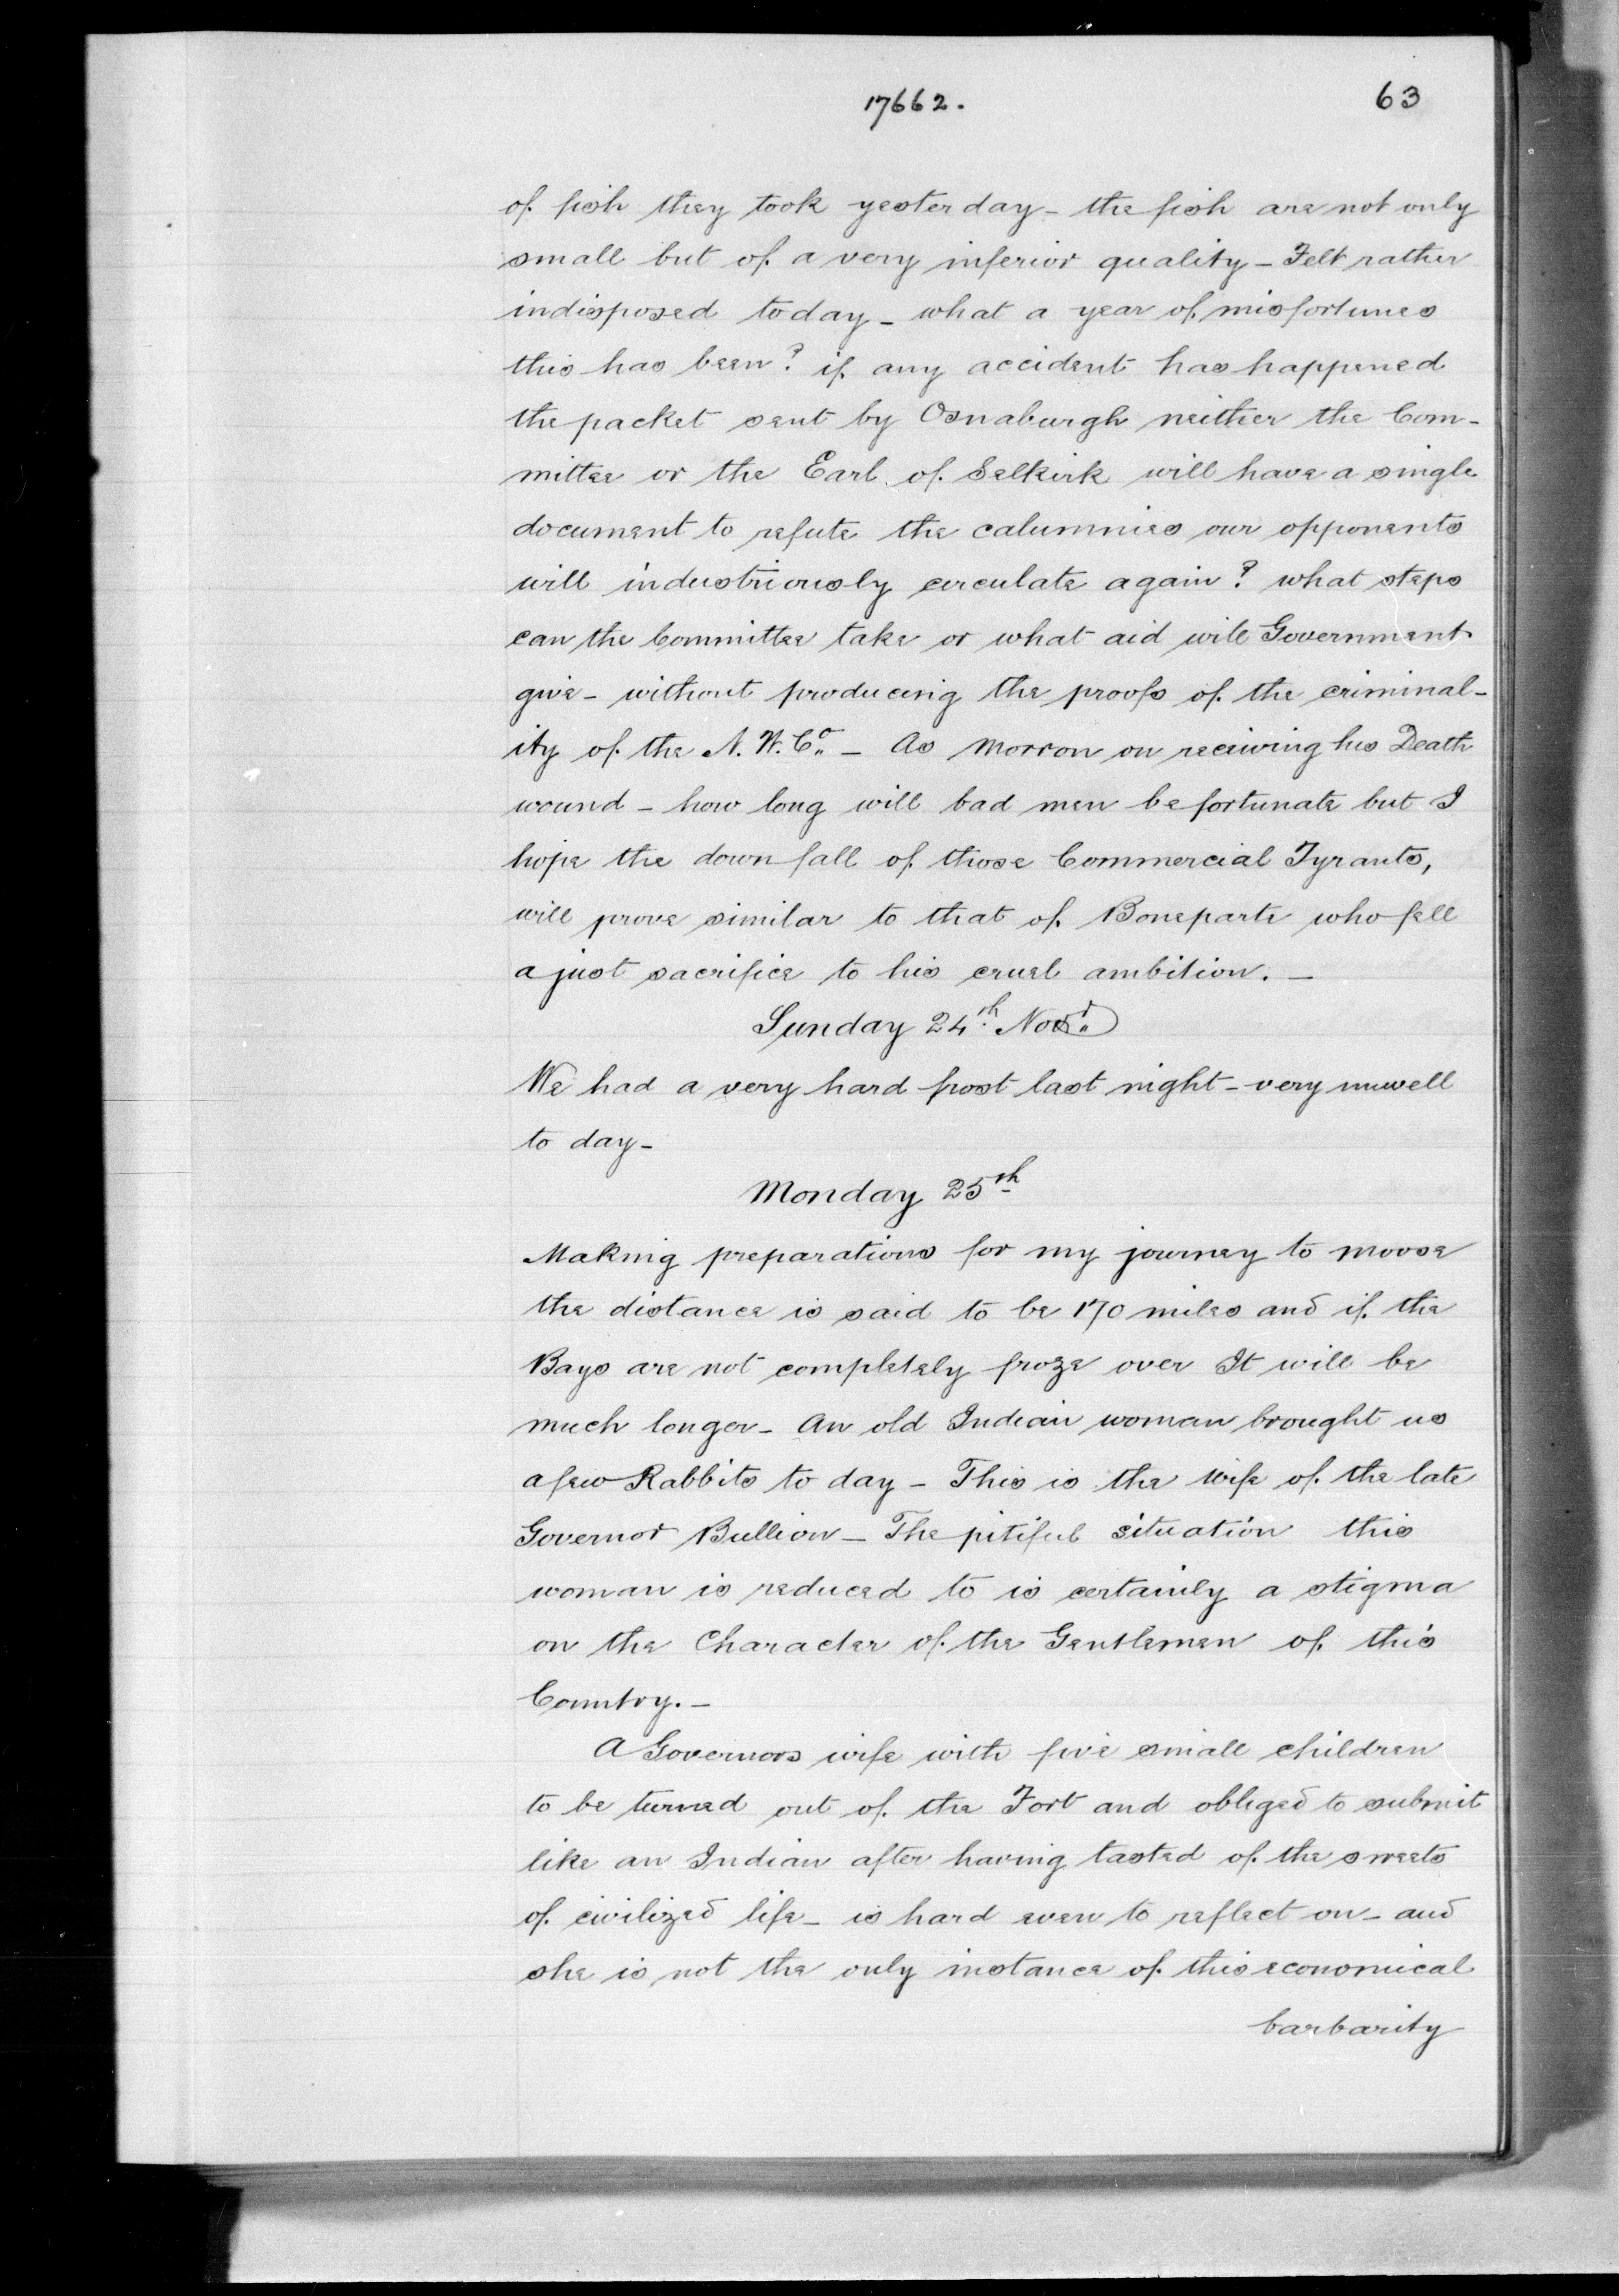 17662. 63
of fish they took yesterday - the fish are not only
small but of a very inferior quality - Felt rather
indisposed today - what a year of misfortunes
this has been? if any accident has happened
the packet sent by Osnaburgh neither the Com-
mittee or the Earl of Selkirk will have a single
document to refute the calumnies our opponents
will industriously circulate again? what steps
can the Committee take or what aid will Government
give - without producing the proofs of the criminal-
ity of the N. W. Co. - As Morron on receiving his Death
wound - how long will bad men be fortunate but I
hope the down fall of those Commercial Tyrants,
will prove similar to that of Boneparte who fell
a just sacrifice to his cruel ambition. -
Sunday 24th.
We had a very hard frost last night - very unwell
to day -
Monday 25th
Making preparations for my journey to Moose
the distance is said to be 170 miles and if the
Bays are not completely froze over It will be
much longer - An old Indian woman brought us
a few Rabbits to day - This is the Wife of the late
Governor Bullion - The pitiful situation this
woman is reduced to is certainly a stigma
on the Character of the Gentlemen of this
Country. -
A Governors wife with five small children
to be turned out of the Fort and obliged to submit
like an Indian after having tasted of the sweets
of civilized life - is hard even to reflect on - and
she is not the only instance of this economical
barbarity